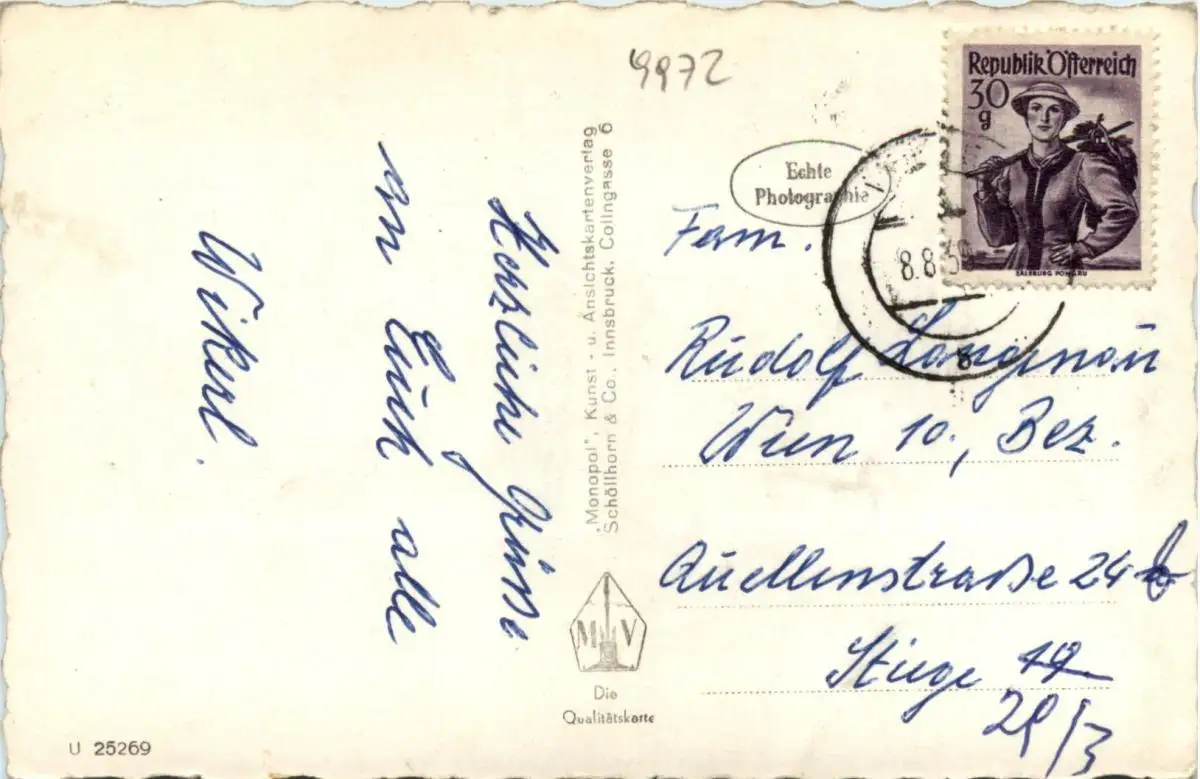 9972
Republik Österreich
30
g
SALZBURG PONGAU
Echte
Photographie
8.8.
8
Herzliche Grüsse
an Euch alle
Wikerl.
„Monopol", Kunst - u. Ansichtskartenverlag
Schöllhorn & Co., Innsbruck, Collngasse 6
M V
Die
Qualitätskarte
Fam.
Rudolf
Wien 10., Bez.
Quellenstraße 24 b
Stiege 12
U 25269